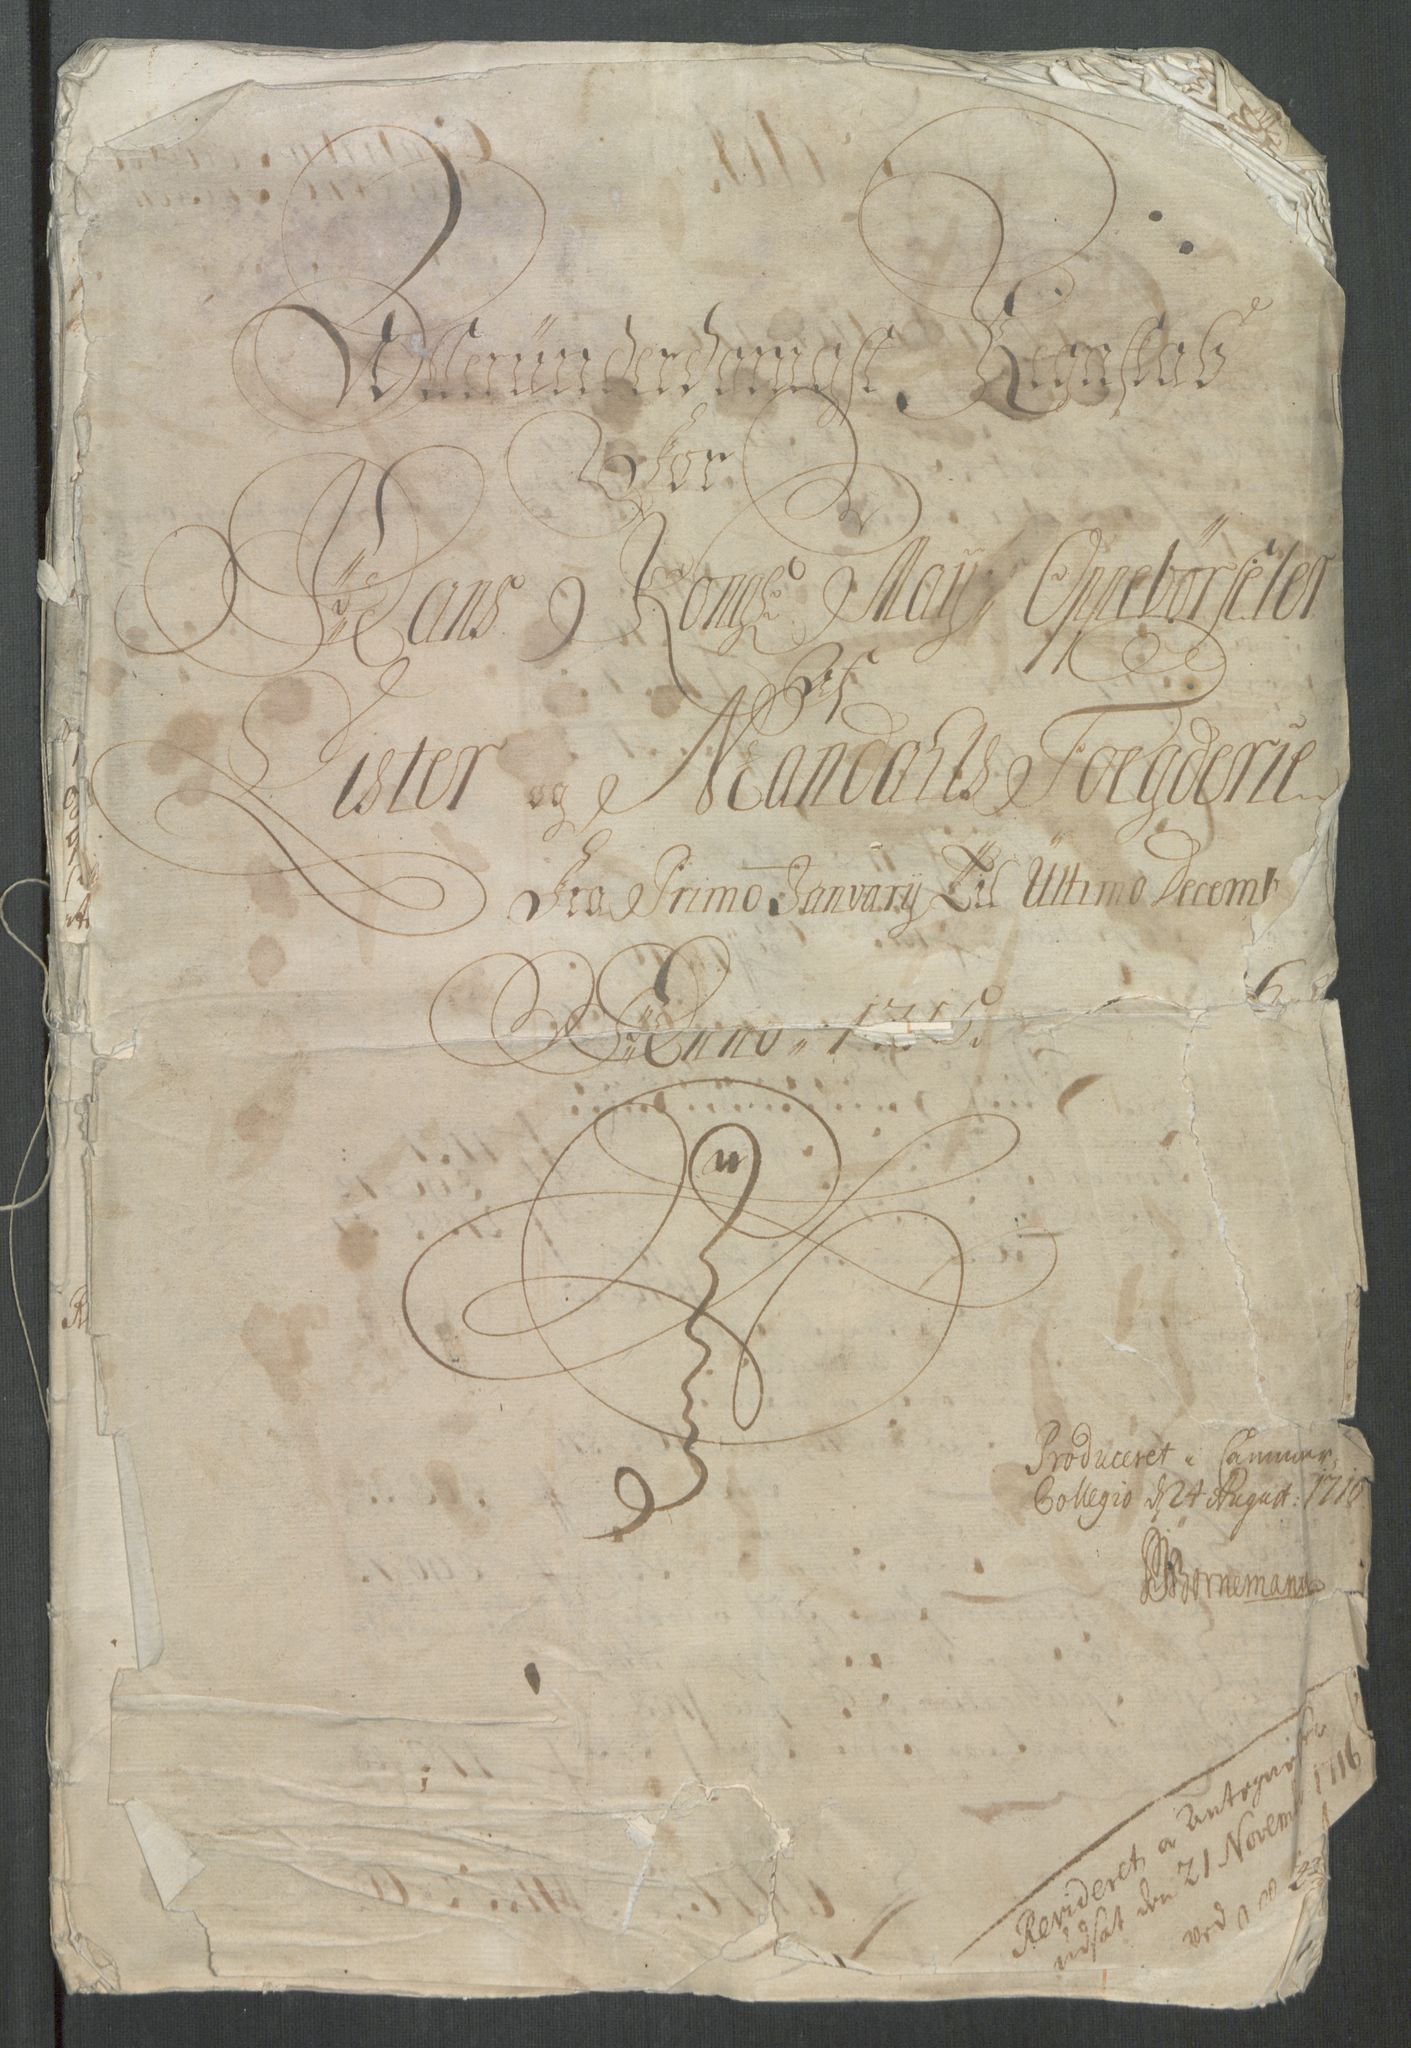 Alleründerdanigst Regnskab
For
Hans Kongl May Oppebørseler
Af
Lister og Mandahls Foegderie
Fra Primo Januarij Til Ultimo Decemb
Anno 1715
Produceret i Cammer
Collegio d 24 August: 1716
Bornemann
Revideret a Antegnelser
udsat den 21 Novemb 1716